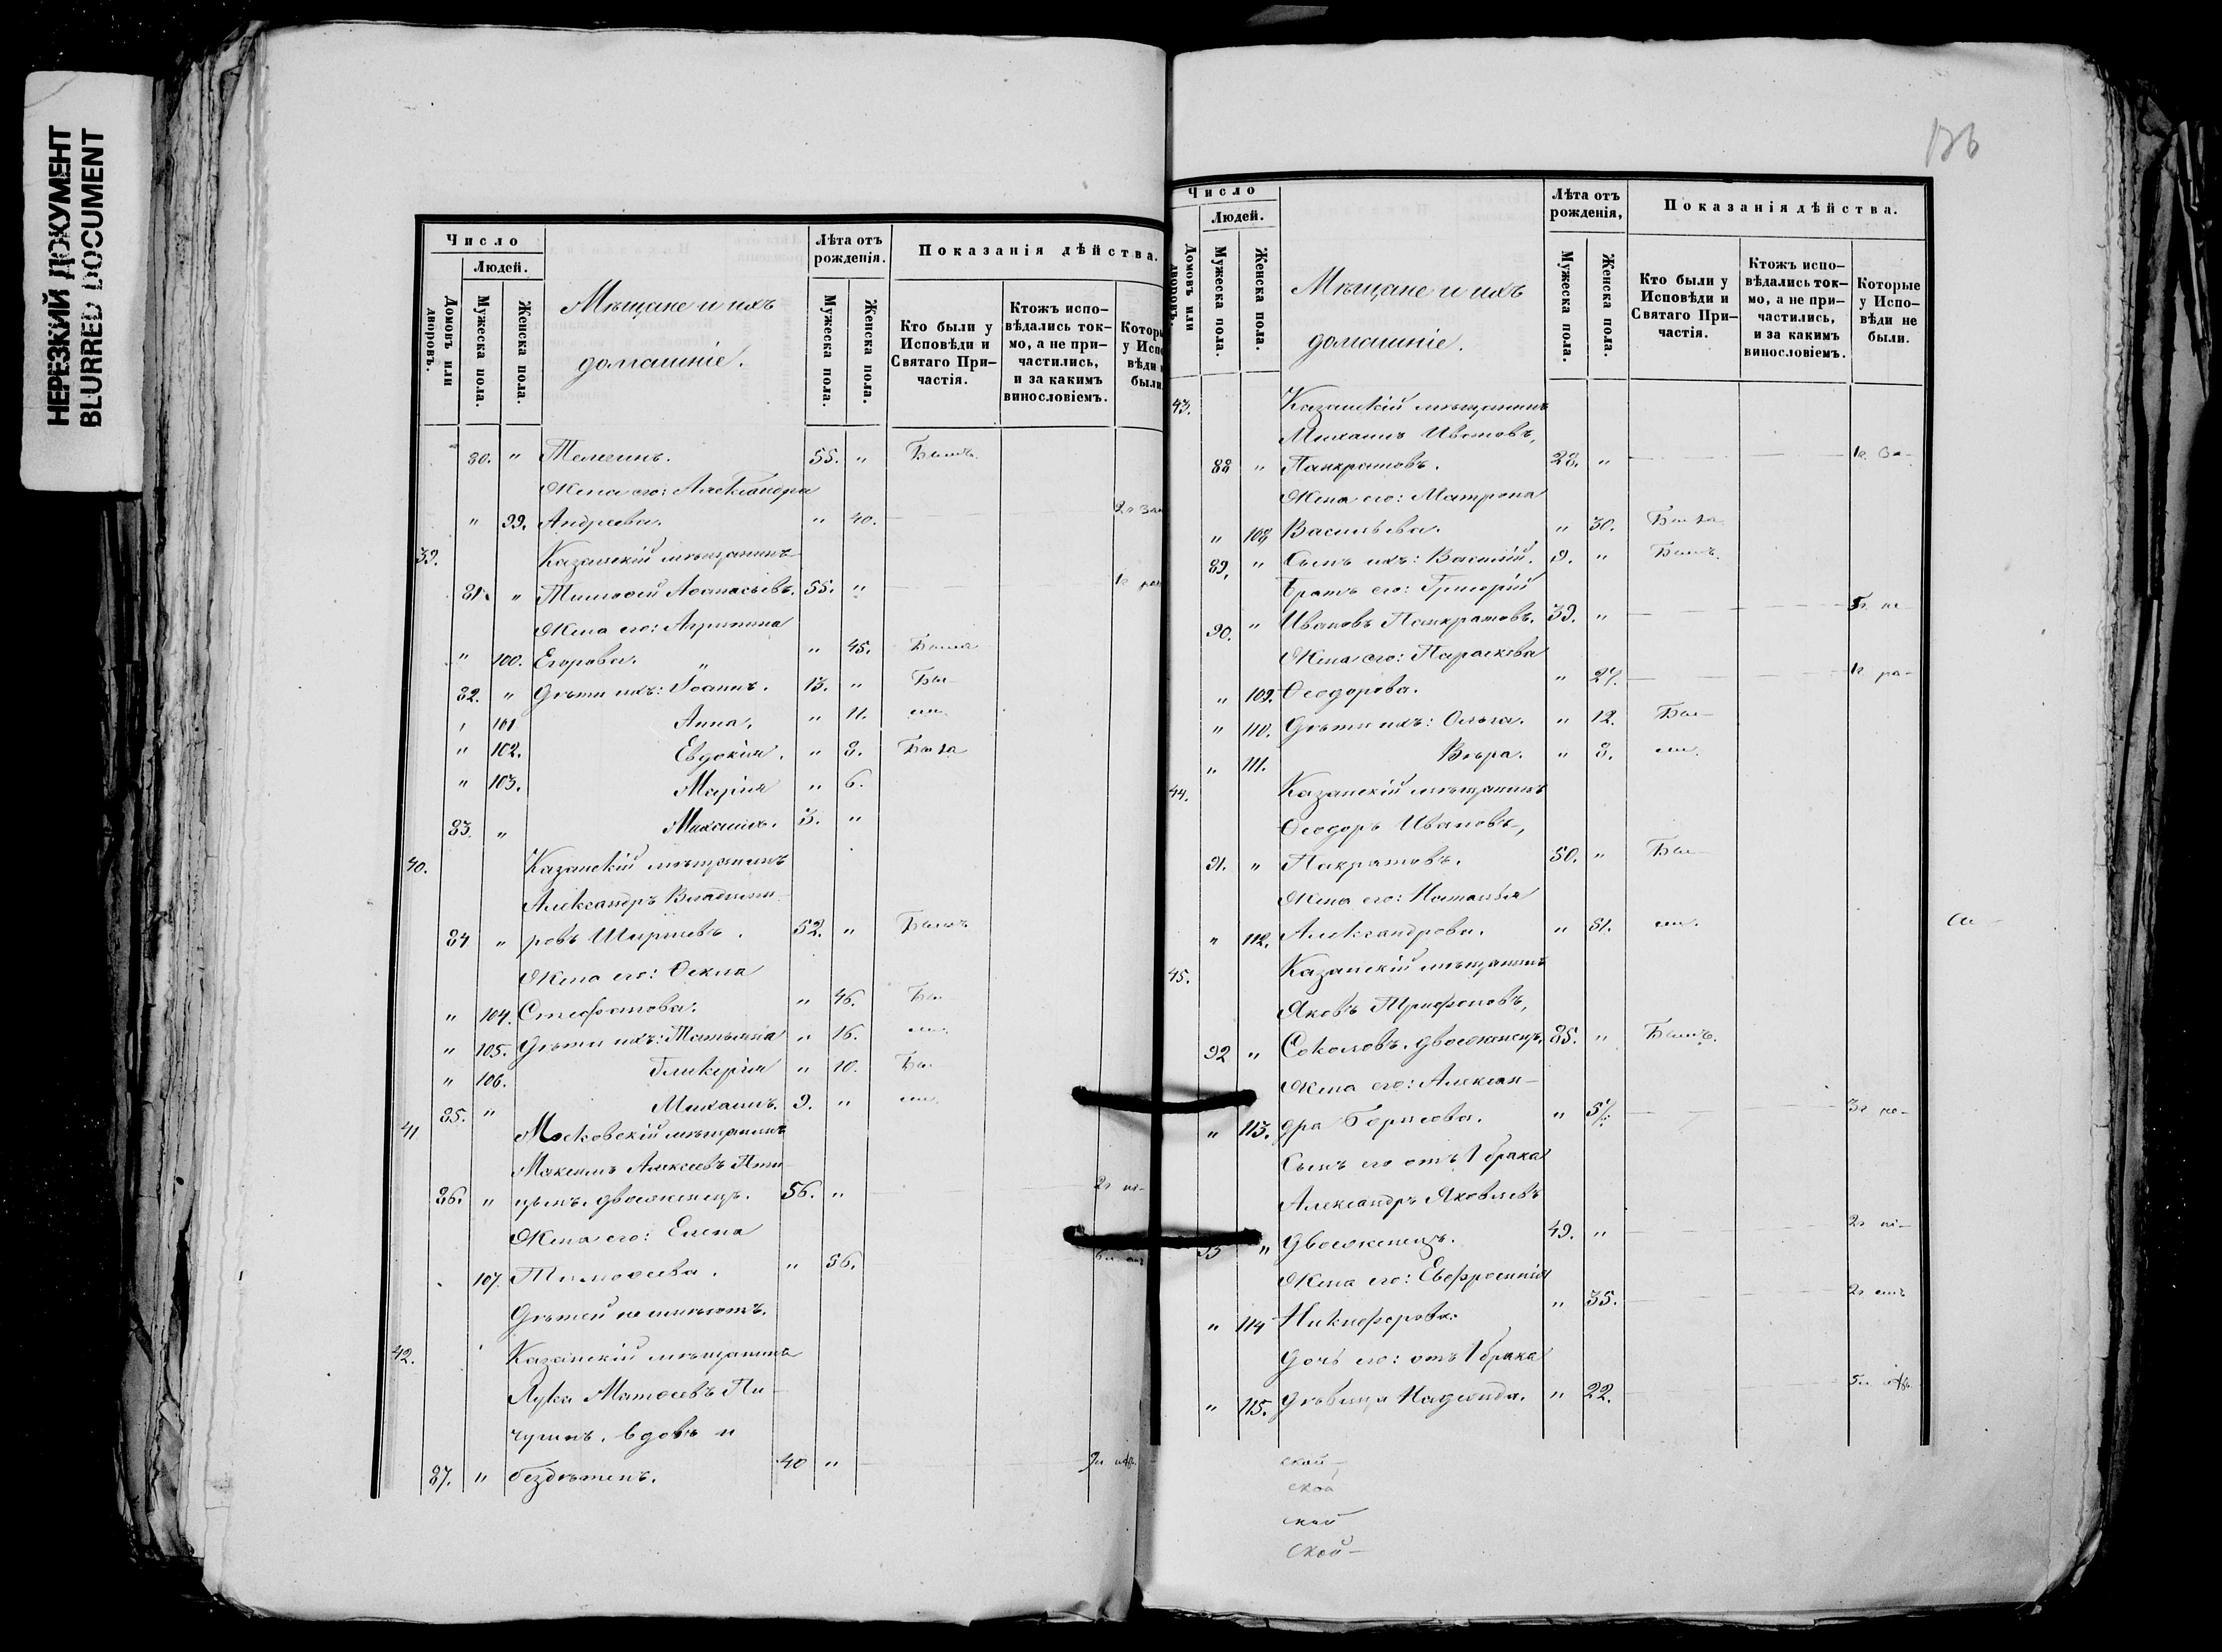 НЕРЕЗКИЙ ДОКУМЕНТ
BLURRED DOCUMENT
Число
Людей.
Домовъ или дворовъ.
Мужеска пола.
Женска пола.
Мѣщане и ихъ
домашніе.
Лѣта отъ рожденія.
Мужеска пола.
Женска пола.
Показанія дѣйства.
Кто были у Исповѣди и Святаго При-частія.
Ктожъ испо-вѣдались ток-мо, а не при-частились, и за какимъ винословіемъ.
80. " 55. " Былъ.
Жена его: Александра
" 99. Андреева. " 40.
39. Казанскій мѣщанинъ
81. " Тимофей Аѳанасьевъ. 55. "
Жена его: Агрипина
" 100. Егорова. " 45. Была
82. " Дѣти ихъ: Іоаннъ. 13. " Бы-
" 101 Анна. " 11. ли.
" 102. Евдокія. " 8. Была
" 103. Марія " 6.
83. " Михаилъ. 3. "
40. Казанскій мѣщанинъ
Александръ Владими-
84 " ровъ Ширяевъ. 52. " Былъ
Жена его: Ѳекла
" 104. Стефанова. " 46. Бы-
" 105. Дѣти ихъ: Татьяна " 16. ли.
" 106. Гликерія " 10. Бы-
85. " Михаилъ. 9. " ли.
41 Московскій мѣщанинъ
Максимъ Алексѣевъ Пти-
86. " цынъ. двоеженецъ. 56. "
Жена его: Елена
107. Тимофеева. " 56.
Дѣтей не имѣютъ.
42. Казанскій мѣщанинъ
Лука Матѳеевъ Пи-
чугинъ. вдовъ и
87. " бездѣтенъ. 40 "
Число
Людей.
Домовъ или дворовъ.
Мужеска пола.
Женска пола.
Мѣщане и ихъ
домашніе.
Лѣта отъ рожденія,
Мужеска пола.
Женска пола.
Показанія дѣйства.
Кто были у Исповѣди и Святаго При-частія.
Ктожъ испо-вѣдались ток-мо, а не при-частились, и за какимъ винословіемъ.
Которые у Испо-вѣди не были.
43. Казанскій мѣщанинъ
Михаилъ Ивановъ,
88 " Панкратовъ. 28. "
Жена его: Матрона
" 108 Васильева. " 30. Была
89. " Сынъ ихъ: Василій. 9. " Былъ.
Братъ его: Григорій
90. " Ивановъ Панкратовъ. 39. "
Жена его: Параскева
" 109. Ѳеодорова. " 27.
" 110. Дѣти ихъ: Ольга. " 12. Бы-
" 111. Вѣра. " 8. ли.
44. Казанскій мѣщанинъ
Ѳеодоръ Ивановъ,
91. " Пакратовъ. 50. " Бы-
Жена его: Наталья
" 112. Александрова. " 51. ли.
45. Казанскій мѣщанинъ
Яковъ Трифоновъ,
92 " Соколовъ. двоеженецъ. 85. " Былъ.
Жена его: Алексан-
" 113. дра Борисова. " 57.
Сынъ его отъ 1 брака
Александръ Яковлевъ
93 " Двоеженецъ. 49. "
Жена его: Евфросинія
" 114 Никифорова. " 35.
Дочь его: отъ 1 брака
" 115. Дѣвица Надежда. " 22.
ской
ской